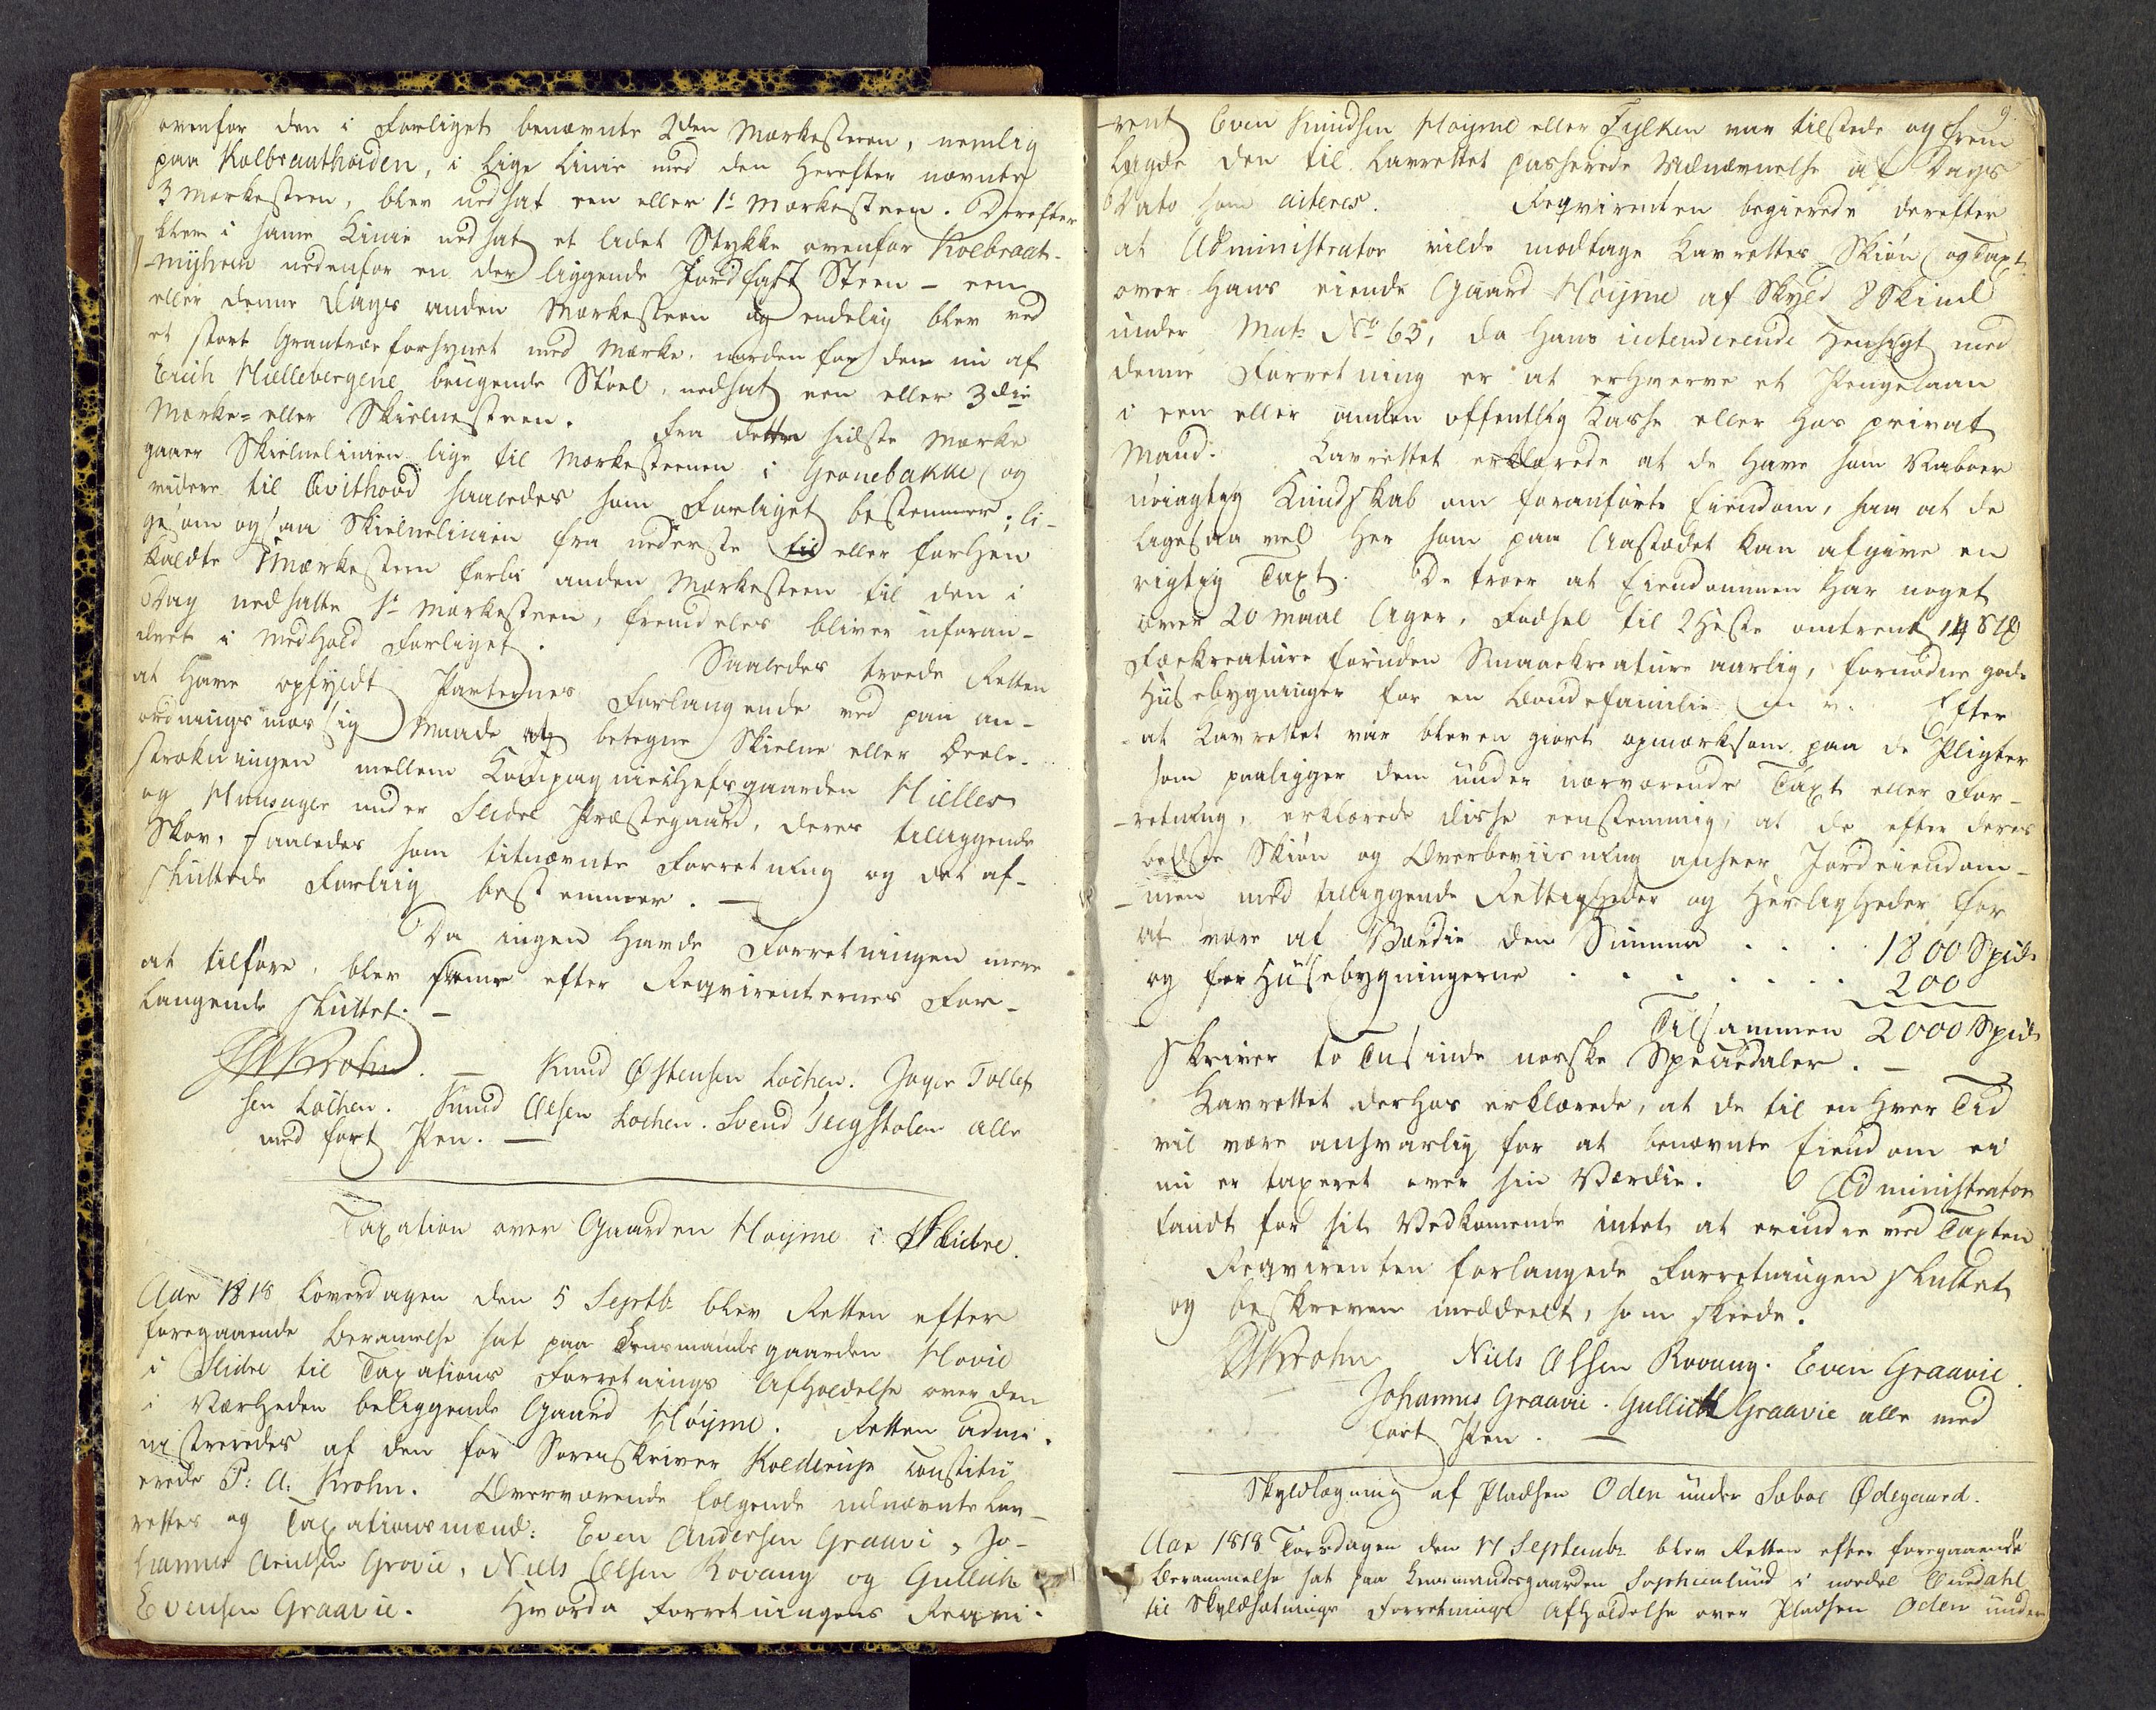 ovenfor den i Forliget benævnte 2den Markesteen, nemlig
paa Kolbraathøiden, i lige Linie med den herefter nævnte
3 Markesteen, blev nedsat een eller 1ste Markesteen. Derefter
blev i same Linie nedsat et lidet Stykke ovenfor Kolbraat-
-myhren nedenfor en der liggende Jordfast Steen - een
eller denne Dags anden Markesteen og endelig blev ved
et stort Grantræe forsynet med Marke, norden for den nu af
Erich Hiellebergene beugende Støel, nedsat een eller 3die
Marke- eller Skielnesteen. Fra dette sidste Marke
gaaer Skielnelinien lige til Markesteenen i Gronebakke og
videre til Qvithovd saaledes som Forliget bestemmer; li-
gesom ogsaa Skielnelinien fra nederste til eller forhen
kaldte Markesteen forbi anden Markesteen til den i
Dag nedsatte 1ste Markesteen, fremdeles bliver uforan-
dret i Medhold Forliget.
Saaledes troede Retten
at have opfyldt Parternes Forlangende ved paa an-
ordningsmæssig Maade at betegne Skielne eller Deele-
strækningen mellem Kompagniechefsgaarden Hielles
og Hunsager under Slidre Præstegaard, deres tilliggende
Skov, saaledes som titnævnte Forretning og det af-
sluttede Forliig bestemmer. —
Da ingen havde Forretningen mere
at tilføre, blev samme efter Reqvirenternes For-
langende sluttet. —
PAKrohn. — Knud Østensen Løchen. Joger Tollef-
sen Løchen. Knud Olsen Løchen. Svend alle
med ført Pen. —
Taxation over Gaarden Høyme i Slidre.
Aar 1818 Løverdagen den 5 Septb: blev Retten efter
foregaaende Berammelse sat paa Lensmandsgaarden Hovie
i Slidre til Taxations Forretnings Afholdelse over den
i Nærheden beliggende Gaard Høyme. Retten admi-
nistreredes af den for Sorenskriver Koldrup constitu
erede P: A: Krohn. Overværende følgende udnævnte Lav-
rettes og Taxationsmænd: Even Andersen Graavi, Jo-
hannes Arnesen Grovie, Niels Olsen Rovang og Gullich
Evensen Graavie. Hvorda Forretningens Reqvi-
9.
-rent Even Knudsen Høyme eller Fylken var tilstede og frem
lagde den til Lavrettet passerede Udnævnelse af Dags
Dato som aiteres. Reqvirenten begierede derefter
at Administrator vilde modtage Lavrettes Skiøn og Taxt
over hans eiende Gaard Høyme af Skyld 8 Skind
under Mat: No 63, da hans intenderende Hensigt med
denne Forretning er at erhverve et Pengelaan
i een eller anden offentlig Kasse eller hos privat
Mand. Lavrettet erklærede at de have som Naboer
nøiagtig Kundskab om foranførte Eiendom, saa at de
ligesaa vel her som paa Aastædet kan afgive en
rigtig Taxt. De troer at Eiendommen har noget
over 20 Maal Ager, Fødsel til 2 Heste omtrent
Fækreature foruden Smaaekreature aarlig, fornødne gode
Husebygninger for en Bondefamilie m v. Efter
at Lavrettet var bleven giort opmærksom paa de Pligter
som paaligger dem under nærværende Taxt eller For-
-retning, erklærede disse eenstemmig, at de efter deres
bedste Skiøn og Overbeviisning anseer Jordeiendom-
-men med tilliggende Rettigheder og Herligheder for
at være af Værdie den Summa . . . 1800 Spd:
og for Husebygningerne . . . . . . 200
Tilsammen 2000 Spd:
skriver to Tusinde norske Speciedaler. —
Lavrettet derhos erklærede, at de til enhver Tid
vil være ansvarlig for at benævnte Eiendom ei
nu er taxeret over sin Værdie. Administrator
fandt for sit Vedkomende intet at erindre ved Taxten
Reqvirenten forlangede Forretningen sluttet
og beskreven meddeelt, som skeede.
PAKrohn Niels Olsen Rovang. Even Graavie.
Johannes Graavie. Gullich Graavie alle med
ført Pen. —
Skyldlægning af Pladsen Oden under Saboe Ødegaard.
Aar 1818 Torsdagen den 17 Septembr blev Retten efter foregaaende
Berammelse sat paa Lensmandsgaarden Sophienlund i nordre Aurdahl
til Skyldsætnings Forretnings Afholdelse over Pladsen Oden under